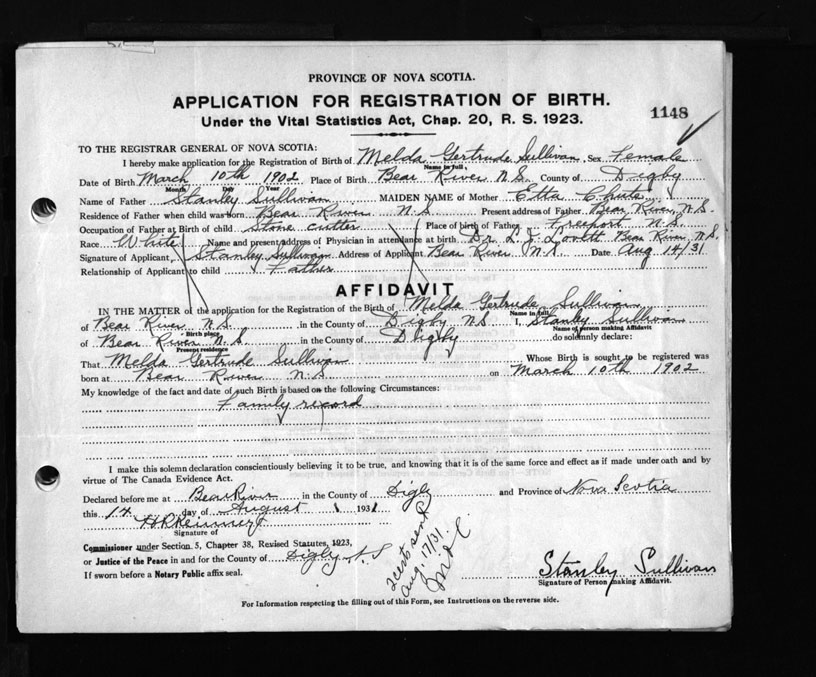 PROVINCE OF NOVA SCOTIA.
APPLICATION FOR REGISTRATION OF BIRTH.
1148
Under the Vital Statistics Act, Chap. 20, R. S. 1923.
TO THE REGISTRAR GENERAL OF NOVA SCOTIA:
I hereby make application for the Registration of Birth of Melda Gertrude Sullivan Sex Female
Name in full
Date of Birth March 10th 1902 Place of Birth Bear River N.S. County of Digby
Month Day Year
Name of Father Stanley Sullivan MAIDEN NAME of Mother Etta Chute
Residence of Father when child was born Bear River N.S Present address of Father Bear River, N.S.
Occupation of Father at Birth of child Stone cutter Place of birth of Father Freeport N.S.
Race White Name and present address of Physician in attendance at birth Dr. L. J. Lovett Bear River, N.S.
Signature of Applicant Stanley Sullivan Address of Applicant Bear River N.S. Date Aug 14/31
Relationship of Applicant to child Father
AFFIDAVIT
IN THE MATTER of the application for the Registration of the Birth of Melda Gertrude Sullivan
Name in full
of Bear River N.S. in the County of Digby N.S I, Stanley Sullivan
Birth place Name of person making Affidavit
of Bear River N.S in the County of Digby do solemnly declare:
Present residence
That Melda Gertrude Sullivan Whose Birth is sought to be registered was
born at Bear River N.S. on March 10th 1902
My knowledge of the fact and date of such Birth is based on the following Circumstances:
Family record
I make this solemn declaration conscientiously believing it to be true, and knowing that it is of the same force and effect as if made under oath and by
virtue of The Canada Evidence Act.
Declared before me at Bear River in the County of Digby and Province of Nova Scotia
this 14 day of August 1931
Signature of
Commissioner under Section 5, Chapter 38, Revised Statutes, 1923,
or Justice of the Peace in and for the County of Digby N.S
If sworn before a Notary Public affix seal.
2 certs sent
Aug. 17/31
Stanley Sullivan
Signature of Person making Affidavit.
For Information respecting the filling out of this Form, see Instructions on the reverse side.